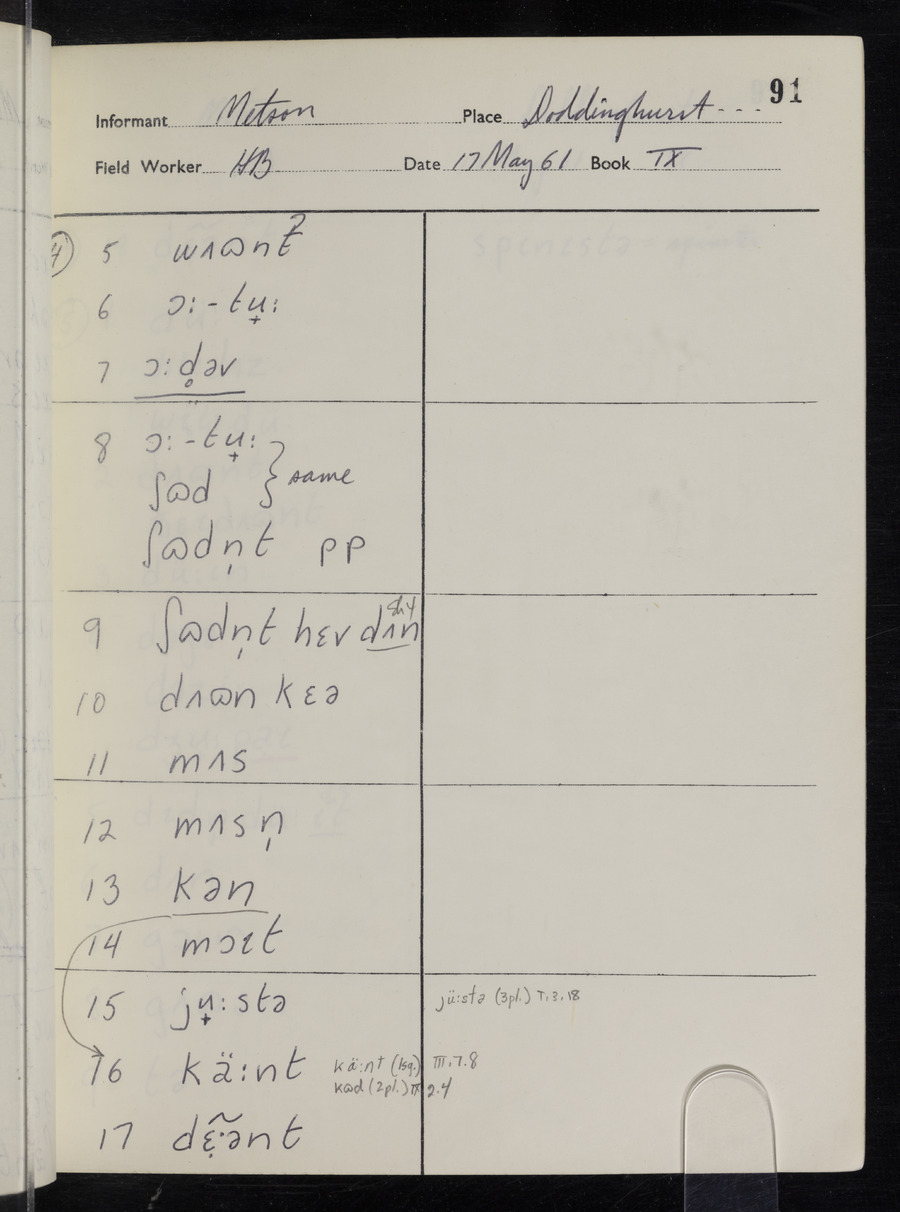 91
Informant Metson Place Doddinghurst - - -
Field Worker HB Date 17 May 61 Book IX
④ 5 wʌɷnt
6 ɔ: - tu̟:
7 ɔ:d̥əv
8 ɔ: - tu̟:
ʃɷd } same
ʃɷdn̩t pp
9 ʃɷdn̩t hɛv dʌn
10 dʌɷn kɛə
11 mʌs
12 mʌsn̩
13 kən
14 mɔɪt
15 ju̟:stə jü:stə (3pl.) V.3.18
16 kä:nt kä:nt (1sg.) III.7.8
kɷd (2pl.) IX 2.4
17 dɛ̣̃:ənt